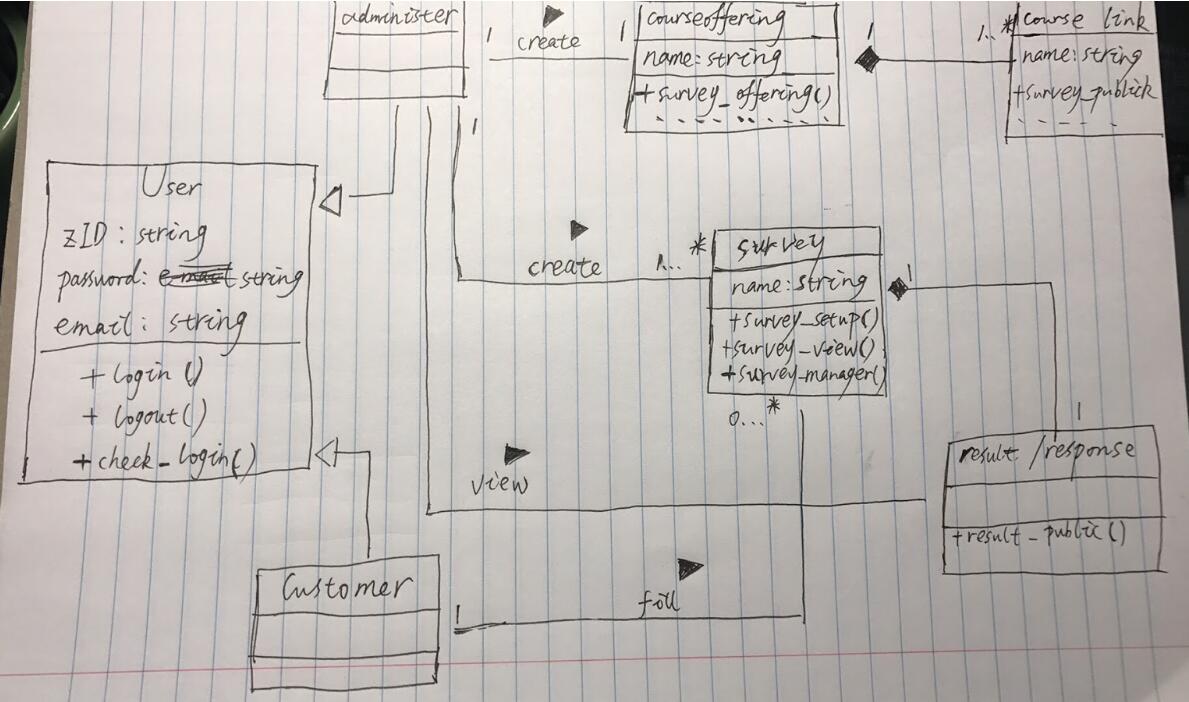 administer
create
1
1
courseoffering
name: string
+survey_offering()
1
1..*
course link
name: string
+survey_publick
User
zID : string
password: string
email : string
+ login ()
+ logout()
+check_login()
1
create
1...*
survey
name: string
+survey_setup()
+survey_view()
+survey_manager()
1
0...*
1
result /response
+result_public()
view
Customer
1
fill